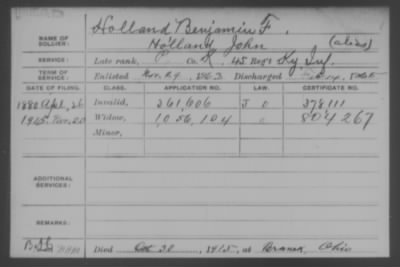 NAME OF SOLDIER: Holland Benjamin F.
Holland, John (alias)
SERVICE: Late rank, Co. 45 Reg't Ky Inf.
TERM OF SERVICE: Enlisted 1863 Discharged
DATE OF FILING. CLASS. APPLICATION NO. LAW. CERTIFICATE NO.
1880 Apl. 26 Invalid, 361,606 J 378111
1915 Nov. 20 Widow, 1,056,104 804267
Minor,
ADDITIONAL SERVICES:
REMARKS:
Died Oct 30, 1915, at Ohio